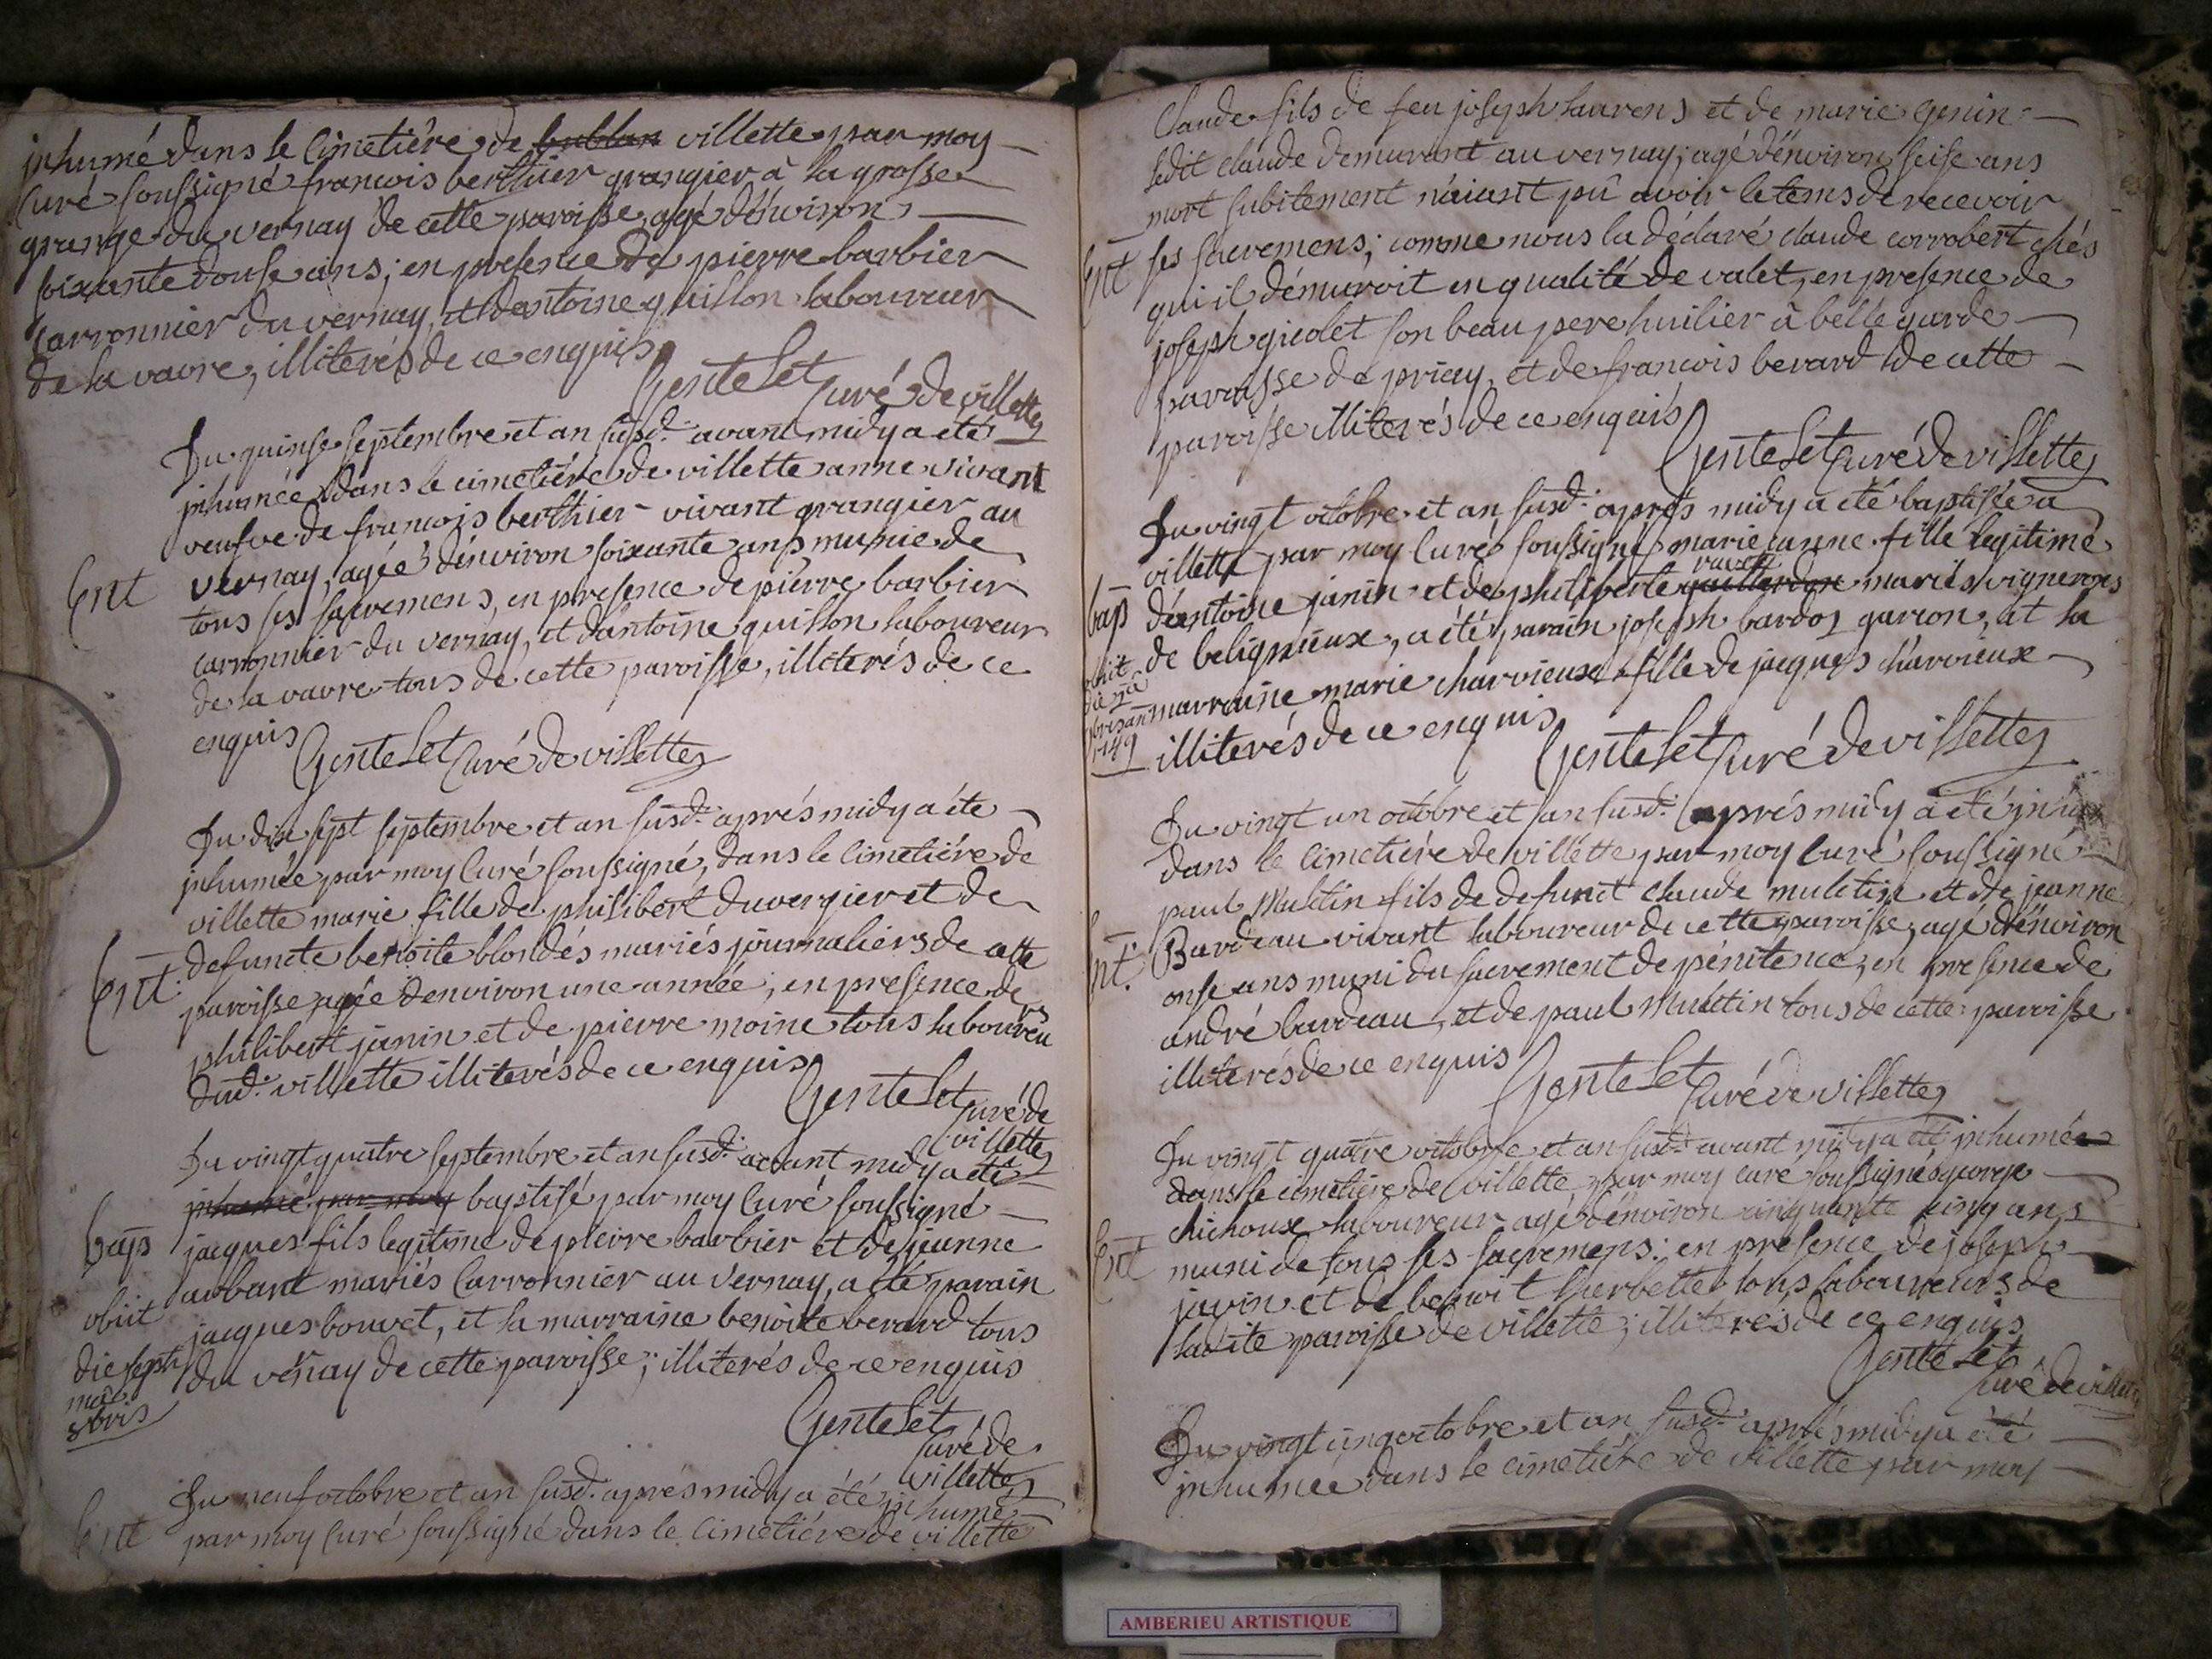 inhumé dans le cimetiére de villette par moy
curé soussigné francois berthier grangier à la grosse
grange du vernay de cette paroisse, agé d'environ
soixante douse ans; en presence de pierre barbier
carronnier du vernay, et dantoine guillon laboureur
de la vavre, illiterés de ce enquis
Gentelet curé de villette
Du quinse septembre et an susd. avant midy a eté
inhumée dans le cimetiére de villette anne vivant
veufve de francois berthier vivant grangier au
Ent
vernay, agéé d'environ soixante ans munie de
tous ses sacremens, en presence de pierre barbier
carronnier du vernay, et d'antoine guillon laboureur
de la vavre tous de cette paroisse, illiterés de ce
enquis
Gentelet curé de villette
Du dix sept septembre et an susd. aprés midy a éte
inhumée par moy curé soussigné, dans le cimetiére de
villette marie fille de philibert duvergier et de
Ent.
defuncte benoite blondés mariés journaliers de cette
paroisse agée denviron une année, en presence de
philibert janin et de pierre moine tous laboureurs
dud. villette illiterés de ce enquis
Gentelet curé de
villette
Du vingt quatre septembre et an susd. avant midy a eté
inhumé par moy baptisé par moy curé soussigné
bap
jacques fils legitime de pierre barbier et de jeanne
aubant mariés carronnier au vernay, a eté parain
obiit
jacques bouvet, et la marraine benoite berard tous
die septi
ma
8bris
du vernay de cette paroisse; illiterés de ce enquis
Gentelet
curé de
villette
Du neuf octobre et an susd. aprés midy a été inhumé
Ent
par moy curé soussigné dans le cimetiére de villette
Claude fils de feu joseph laurens et de marie genin
ledit claude demurant au vernay; agé d'environ seise ans
mort subitement n'aiant pû avoir le tems de recevoir
Ent
ses sacremens; comme nous la déclaré claude corrobert chés
qui il démuroit en qualité de valet, en presence de
joseph giolet son beau pere huilier à belle garde
paroisse de priay, et de francois berard de cette
paroisse illiterés de ce enquis
Gentelet curé de villette
Du vingt octobre et an susd. aprés midy a été baptisée a
villette par moy curé soussigné marie anne fille legitime
ravet
bap
d'antoine janin et de philiberte mariés vignerons
de beligneux, a été parain joseph bardoz garcon, et la
obiit
die 2a
1749
marraine marie charvieux fille de jacques charvieux
illiterés de ce enquis
Gentelet curé de villette
Du vingt un octobre et an susd. aprés midy a eté
dans le cimetiére de villette par moy curé soussigné
paul muletin fils de defunct claude muletin et de jeanne
Ent.
Bardeau vivant laboureur de cette paroisse, agé d'environ
onse ans muni du sacrement de pénitence, en presence de
andré bardeau, et de paul muletin tous de cette paroisse
illiterés de ce enquis
Gentelet curé de villette
Du vingt quatre octobre et an susd. avant midy a eté inhumée
dans le cimetiére de villette par moy curé soussigné george
chichoux laboureur agé d'environ cinquante cinq ans
Ent
muni de tous ses sacremens; en presence de joseph
janin et de benoit therbette tous laboureurs de
ladite paroisse de villette; illiterés de ce enquis
Gentelet
curé de villette
Du vingt cinq octobre et an susd. aprés midy a été
inhumée dans le cimetiére de villette par moy
AMBERIEU ARTISTIQUE